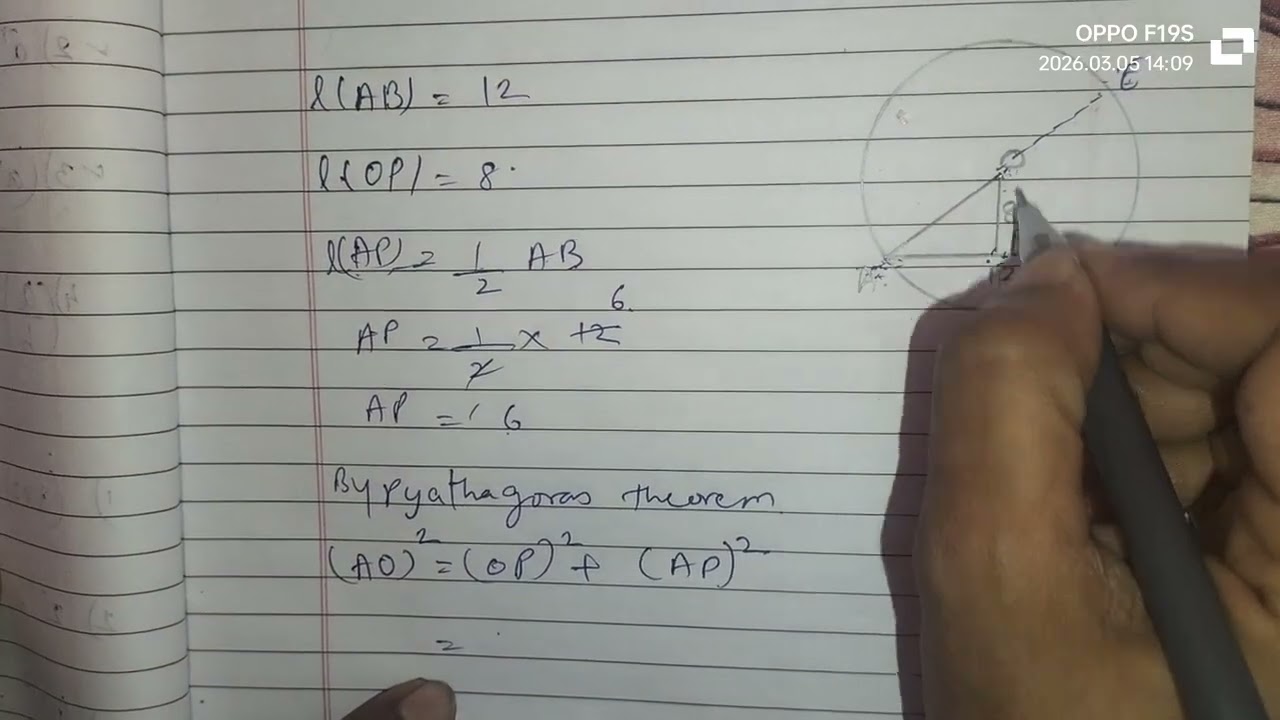 OPPO F19S
2026.03.05 14:09
l(AB) = 12
l(OP) = 8
l(AP) = 1/2 AB
6
AP = 1/2 × 12
AP = 6
By pyathagoras theorem
(AO)² = (OP)² + (AP)²
=
E
O
8
A
12